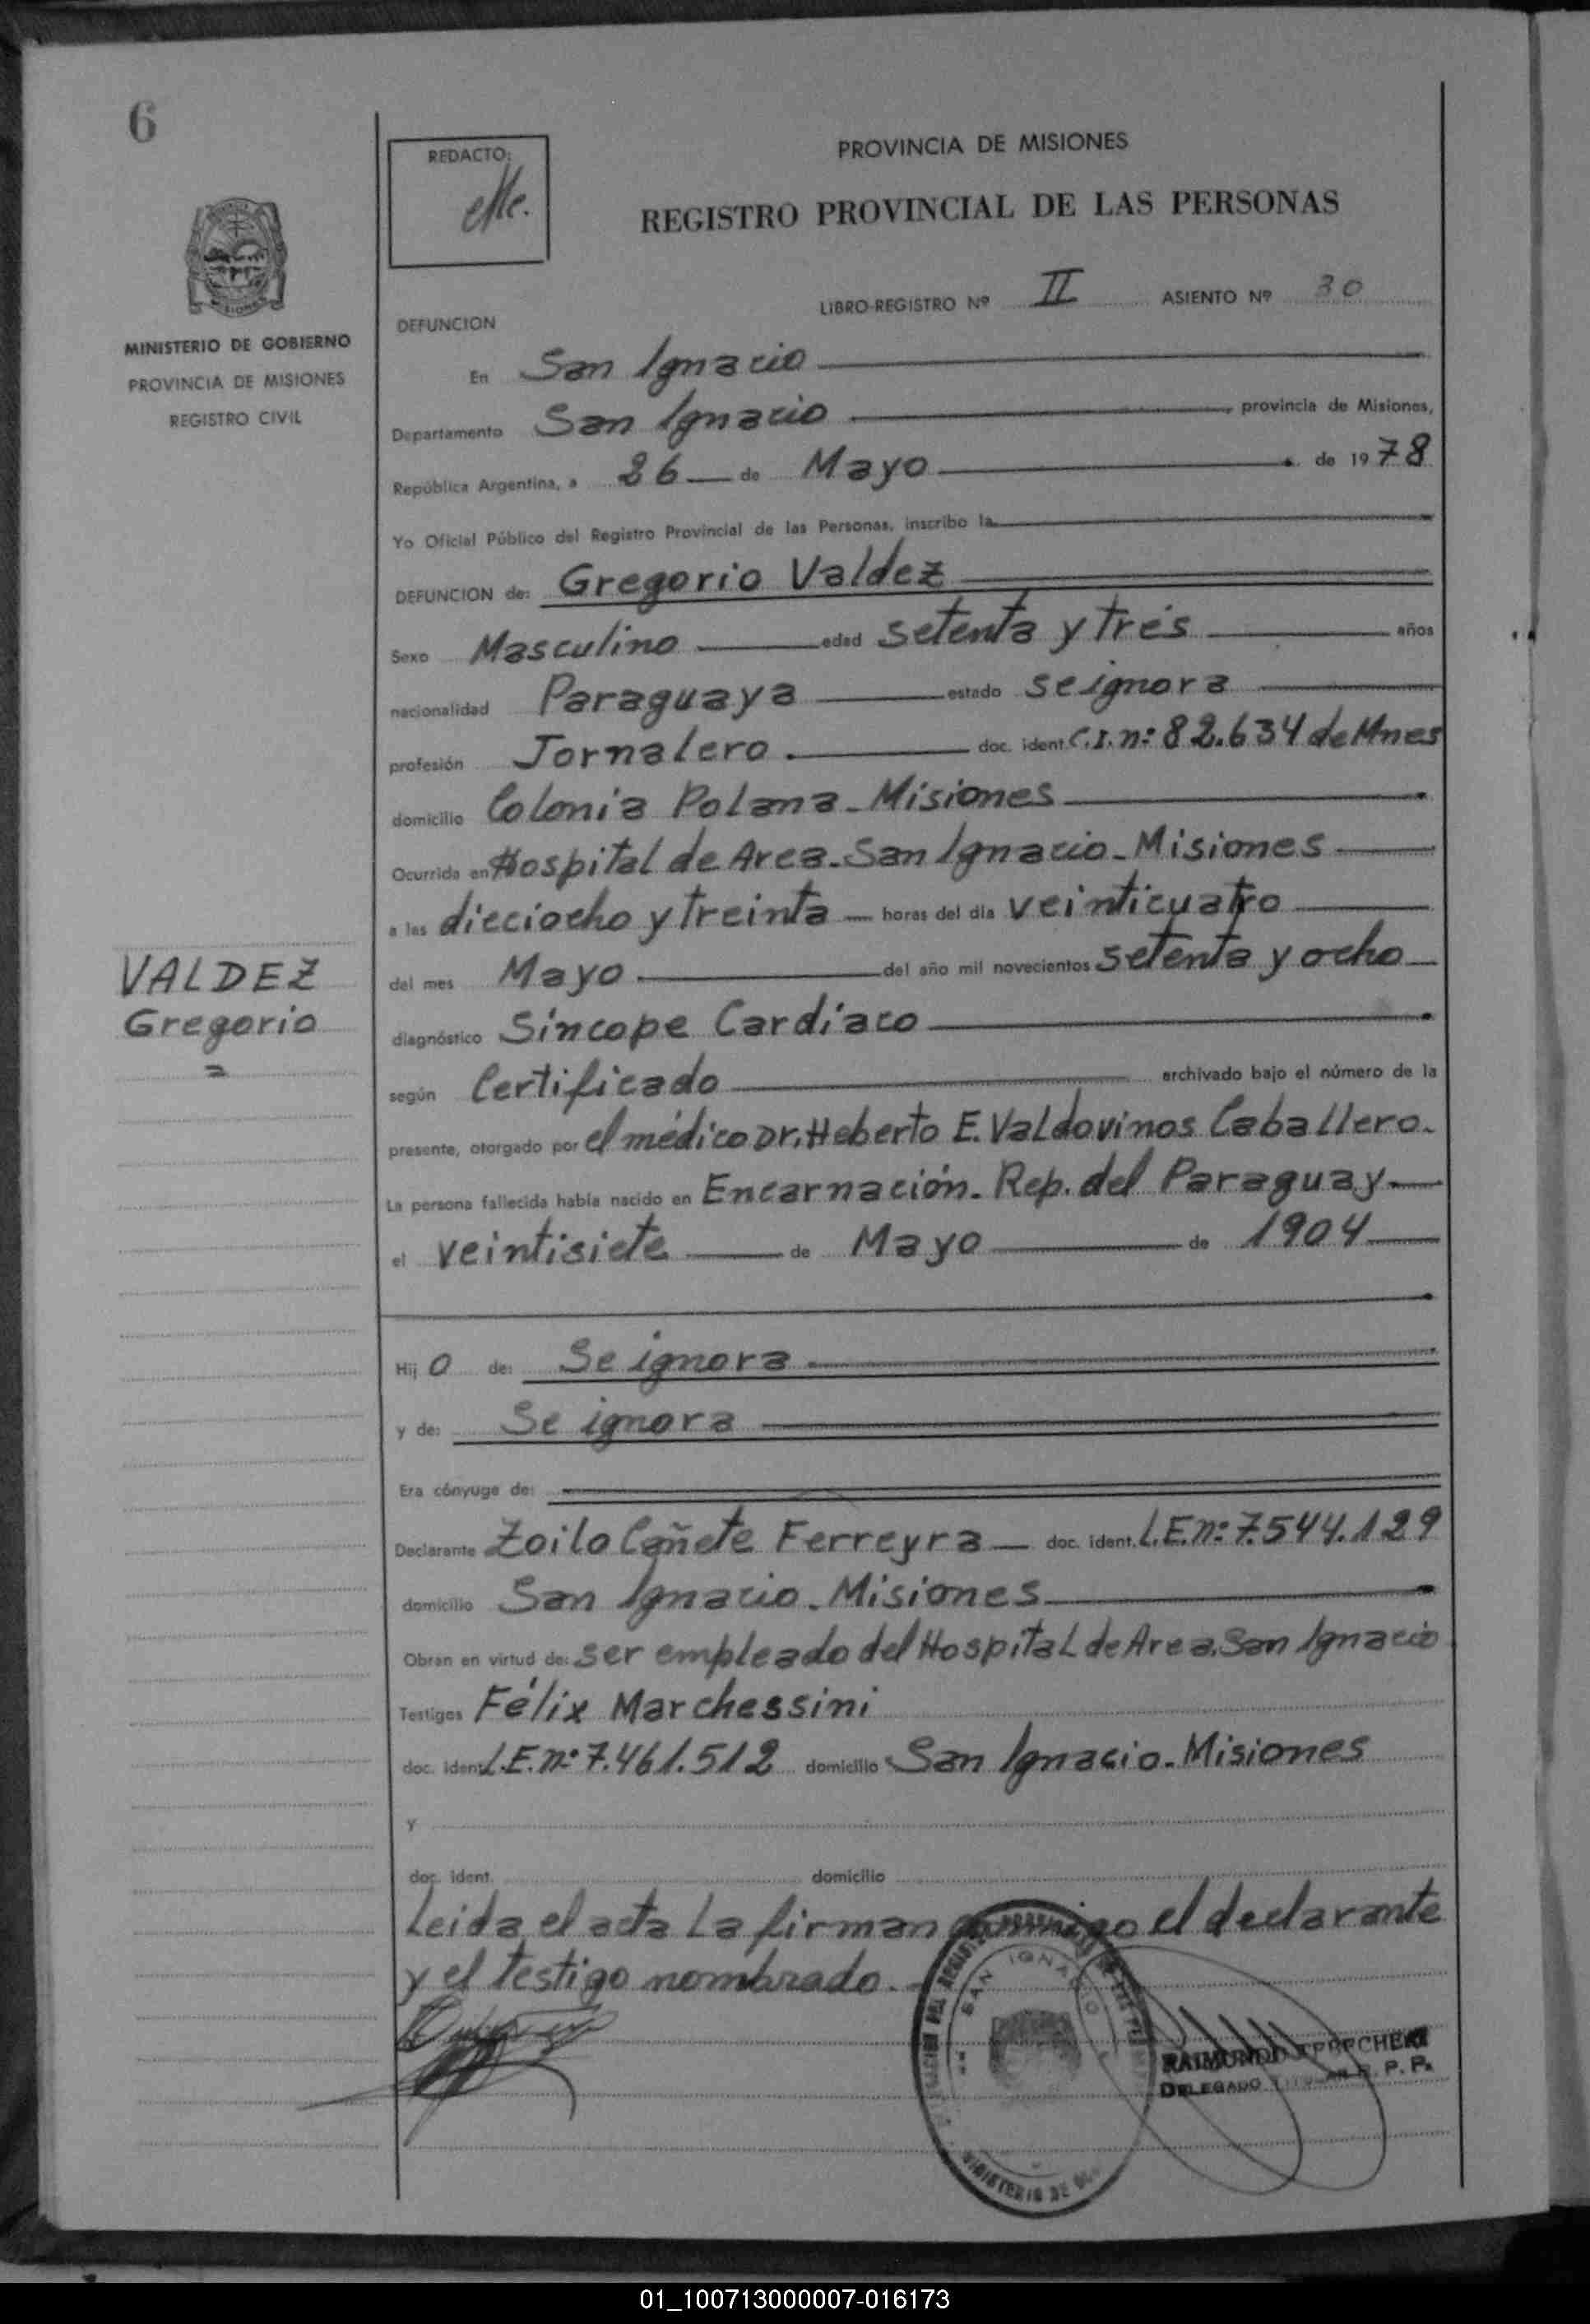 6
REDACTO:
PROVINCIA DE MISIONES
REGISTRO PROVINCIAL DE LAS PERSONAS
MINISTERIO DE GOBIERNO
PROVINCIA DE MISIONES
REGISTRO CIVIL
LIBRO-REGISTRO Nº II ASIENTO Nº 30
DEFUNCION
En San Ignacio
Departamento San Ignacio provincia de Misiones,
República Argentina, a 26 de Mayo de 1978
Yo Oficial Público del Registro Provincial de las Personas, inscribo la
DEFUNCION de: Gregorio Valdez
Sexo Masculino edad setenta y trés años
nacionalidad Paraguaya estado se ignora
profesión Jornalero. doc. ident. C.I. nº: 82.634 de Mnes
domicilio Colonia Polana - Misiones
Ocurrida en Hospital de Area - San Ignacio - Misiones
a las dieciocho y treinta horas del día veinticuatro
del mes Mayo del año mil novecientos setenta y ocho
VALDEZ
Gregorio
=
diagnóstico Síncope Cardíaco
según Certificado archivado bajo el número de la
presente, otorgado por el médico Dr. Heberto E. Valdovinos Caballero.
La persona fallecida había nacido en Encarnación. Rep. del Paraguay
el veintisiete de Mayo de 1904
Hijo de: Se ignora
y de: Se ignora
Era cónyuge de:
Declarante Zoilo Cañete Ferreyra doc. ident. L.E. nº: 7.544.129
domicilio San Ignacio - Misiones
Obran en virtud de: ser empleado del Hospital de Area. San Ignacio
Testigos Félix Marchessini
doc. ident. L.E. nº: 7.461.512 domicilio San Ignacio - Misiones
y
doc. ident. domicilio
Leida el acta La firman conmigo el declarante
y el testigo nombrado.
SAN IGNACIO
RAIMUNDO
DELEGADO TITULAR R. P. P.
MINISTERIO DE
01_100713000007-016173